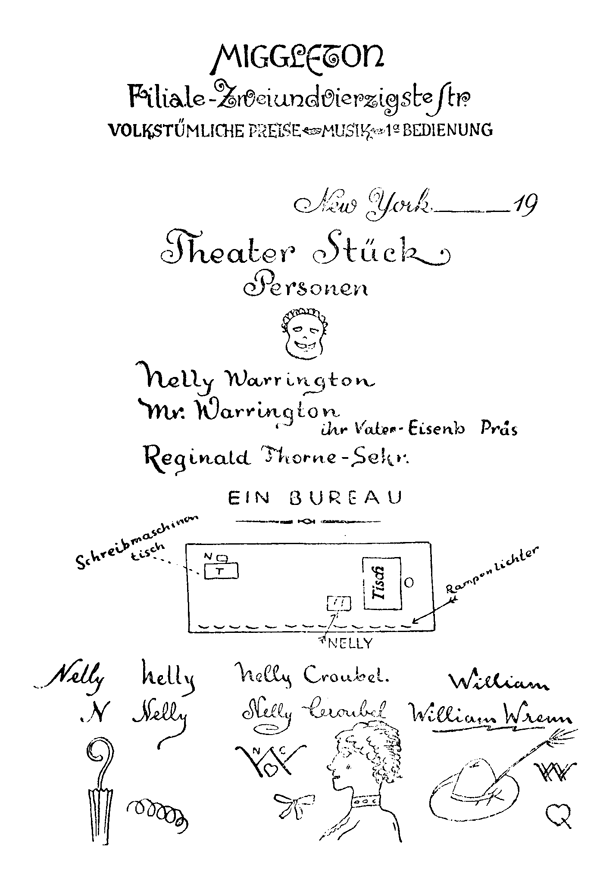 MIGGLETON
Filiale-Zweiundvierzigste Str.
VOLKSTÜMLICHE PREISE MUSIK 1ª BEDIENUNG
New York 19
Theater Stück
Personen
Nelly Warrington
Mr. Warrington
ihr Vater-Eisenb Präs
Reginald Thorne-Sekr.
EIN BUREAU
Schreibmaschinen
tisch
N
T
Tisch
Rampenlichter
NELLY
Nelly nelly Nelly Croubel. William
N Nelly Nelly Croubel William Wrenn
N C
W